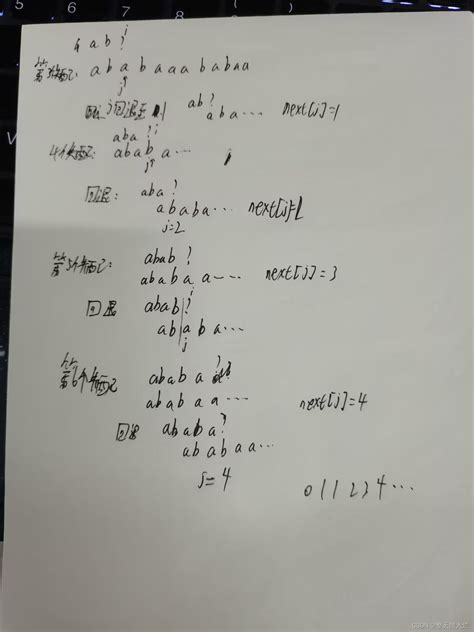 5 6 7 8
ab?
第3个失配: ababaaababaa
回退 j回退至1 ab?
aba... next[j]=1
aba?
4个失配: ababa...
回退: aba?
ababa... next[j]=2
j=2
第5个失配: abab?
ababaa... next[j]=3
回退 abab?
ababa...
j
第6个失配 ababa?
ababaa... next[j]=4
回退 ababa?
ababaa...
j=4
011234...